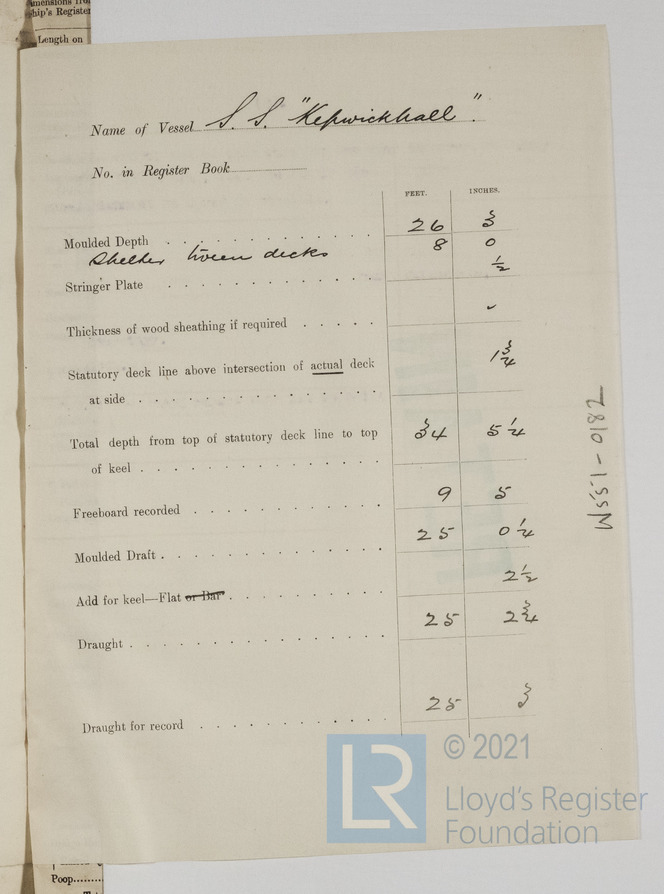 ship's Register
Length on
Name of Vessel S. S. "Kepwickhall".
No. in Register Book
FEET. INCHES.
Moulded Depth 26 3
Shelter 'tween decks 8 0
Stringer Plate ½
Thickness of wood sheathing if required ✓
Statutory deck line above intersection of actual deck
at side 1¾
Total depth from top of statutory deck line to top
of keel 34 5¼
Freeboard recorded 9 5
Moulded Draft 25 0¼
Add for keel—Flat or Bar 2½
Draught 25 2¾
Draught for record 25 3
W551-0182
LR © 2021
Lloyd's Register
Foundation
Poop